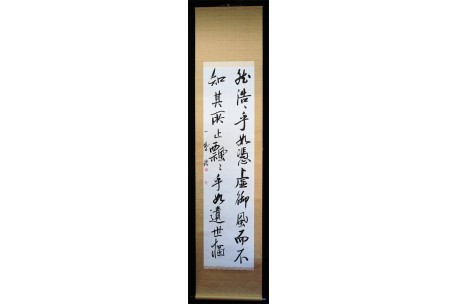 然浩々乎如憑虛御風而不
知其所止飄々乎如遺世獨